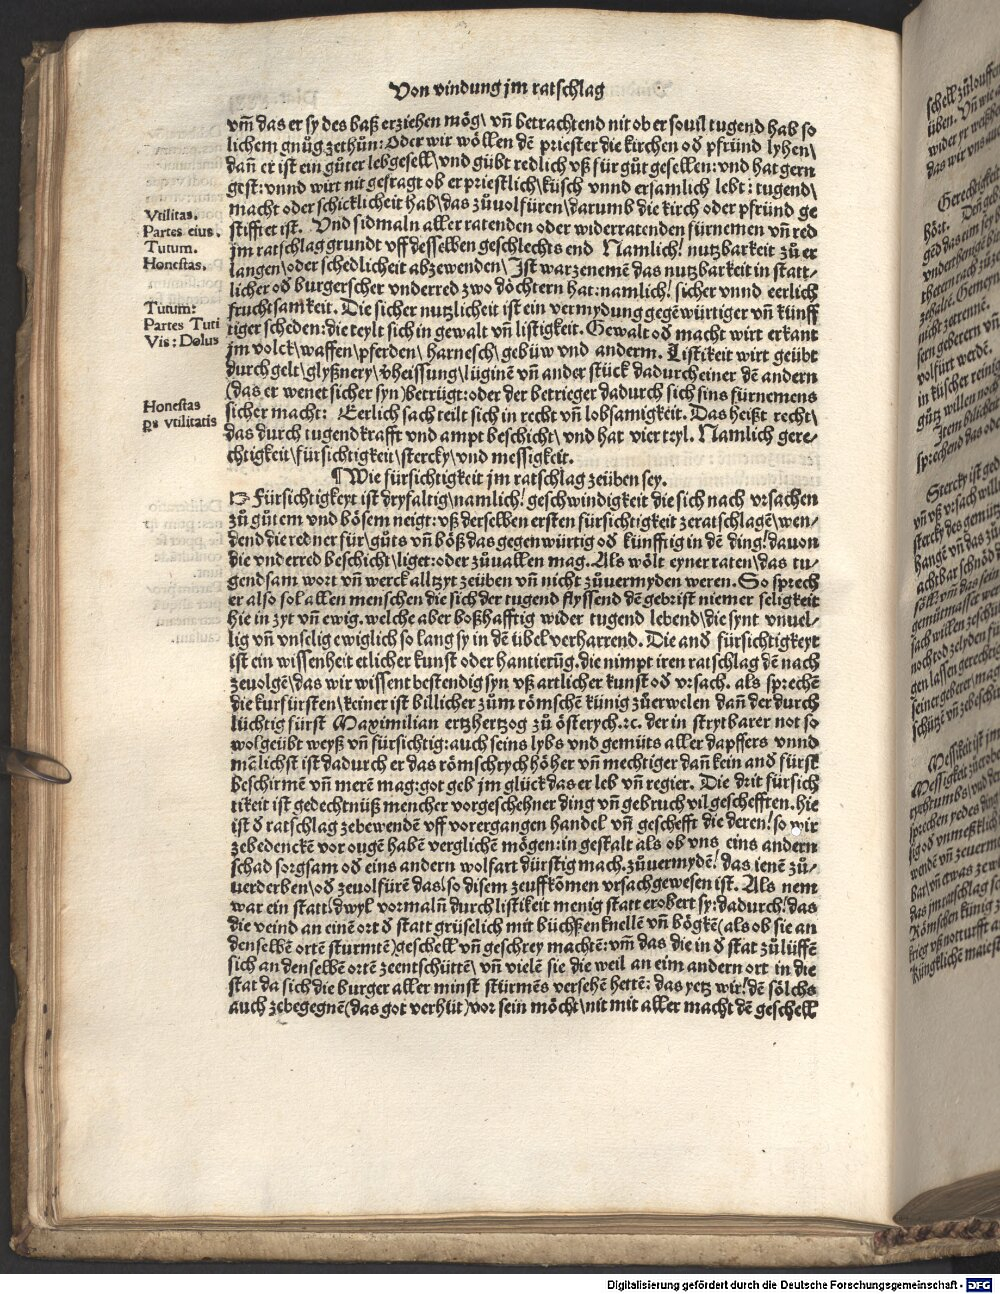 Von vindung jm ratschlag
vm̃ das er sy des baß erziehen mög/ vñ betrachtend nit ob er souil tugend hab so
lichem gnůg zethůn: Oder wir wöllen dẽ priester die kirchen od pfründ lyhen/
dañ er ist ein gůter lebgesell/ vnd gübt redlich vß für gůt gesellen: vnd hat gern
gest: vnnd wirt nit gefragt ob er priestlich/ küsch vnnd ersamlich lebt: tugend/
macht oder schicklicheit hab/ das zůuolfüren/ darumb die kirch oder pfründ ge
stifftet ist. Vnd sidmaln aller ratenden oder widerratenden fürnemen vñ red
Vtilitas.
Partes eius.
Tutum.
Honestas.
jm ratschlag grundt vff desselben geschlechts end Namlich! nutzbarkeit zů er
langen/ oder schedlicheit abzewenden/ Ist war zenemẽ das nutzbarkeit in statt/
licher od burgerscher vnderred zwo döchtern hat: namlich! sicher vnnd eerlich
fruchtsamkeit. Die sicher nutzlicheit ist ein vermydung gegẽwürtiger vñ künff
Tutum:
Partes Tuti
Vis: Dolus
tiger scheden: die teylt sich in gewalt vñ listigkeit. Gewalt od macht wirt erkant
jm volck/ waffen/ pferden/ harnesch/ gebüw vnd anderm. Listikeit wirt geübt
durch gelt/ glyßnery/ v̄heissung/ lüginẽ vñ ander stück dadurch einer dẽ andern
(das er wenet sicher syn) betrügt: oder der betrieger dadurch sich sins fürnemens
Honestas
ps vtilitatis
sicher macht: Eerlich sach teilt sich in recht vñ lobsamigkeit. Das heißt recht/
das durch tugend krafft vnd ampt beschicht/ vnd hat vier teyl. Namlich gere/
chtigkeit/ fürsichtigkeit/ stercky/ vnd messigkeit.
¶ Wie fürsichtigkeit jm ratschlag zeüben sey.
☞ Fürsichtigkeyt ist dryfaltig/ namlich! geschwindigkeit die sich nach vrsachen
zů gůtem vnd bösem neigt: vß derselben ersten fürsichtigkeit zeratschlagẽ/ wen/
dend die redner für/ gůts vñ böß das gegenwürtig od künfftig in dẽ ding! dauon
die vnderred beschicht/ liget: oder zůuallen mag. Als wölt eyner raten/ das tu/
gendsam wort vñ werck alltzyt zeüben vñ nicht zůuermyden weren. So sprech
er also sol allen menschen die sich der tugend flyssend dẽ gebrist niemer seligkeit
hie in zyt vñ ewig. welche aber boßhafftig wider tugend lebend/ die synt vnuel/
lig vñ vnselig ewiglich so lang sy in dẽ übel verharrend. Die and fürsichtigkeyt
ist ein wissenheit etlicher kunst oder hantierũg. die nimpt iren ratschlag dẽ nach
zeuolgẽ/ das wir wissent bestendig syn vß artlicher kunst od vrsach. als sprechẽ
die kurfürsten/ keiner ist billicher zům römschẽ künig zůerwelen dañ der durch
lüchtig fürst Maximilian ertzhertzog zů österych. ꝛc. der in strytbarer not so
wolgeübt weyß vñ fürsichtig: auch seins lybs vnd gemüts aller dapffers vnnd
mẽlichst ist dadurch er das römschrych höher vñ mechtiger dañ kein and fürst
beschirmẽ vñ merẽ mag: got geb jm glück das er leb vñ regier. Die drit fürsich
tikeit ist gedechtnüß mencher vorgeschehner ding vñ gebruch vil geschefften. hie
ist d ratschlag zebewendẽ vff vorergangen handel vñ geschefft die deren! so wir
zebedenckẽ vor ougẽ habẽ verglichẽ mögen: in gestalt als ob vns eins andern
schad sorgsam od eins andern wolfart dürstig mach. zůuermydẽ! das ienẽ zů/
uerderben/ od zeuolfürẽ das! so disem zeuffkõmen vrsach gewesen ist. Als nem
war ein statt! dwyl vormalñ durch listikeit menig statt erobert sy: dadurch! das
die veind an einẽ ort d statt grüselich mit büchßen knellẽ vñ bögkẽ (als ob sie an
denselbẽ ortẽ sturmtẽ) geschell vñ geschrey machtẽ: vm̃ das die in d stat zů lüffẽ
sich an denselbẽ ortẽ zeentschüttẽ/ vñ vielẽ sie die weil an eim andern ort in die
stat da sich die burger aller minst stürmẽs versehẽ hettẽ: das yetz wir! dẽ sölchs
auch zebegegnẽ (das got verhüt) vor sein möcht/ nit mit aller macht dẽ geschell
Digitalisierung gefördert durch die Deutsche Forschungsgemeinschaft - DFG